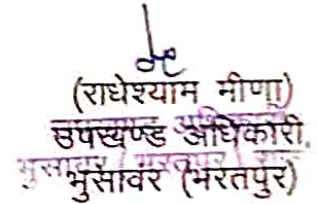 (राधेश्याम मीणा)
उपखण्ड अधिकारी
भुसावर (भरतपुर)